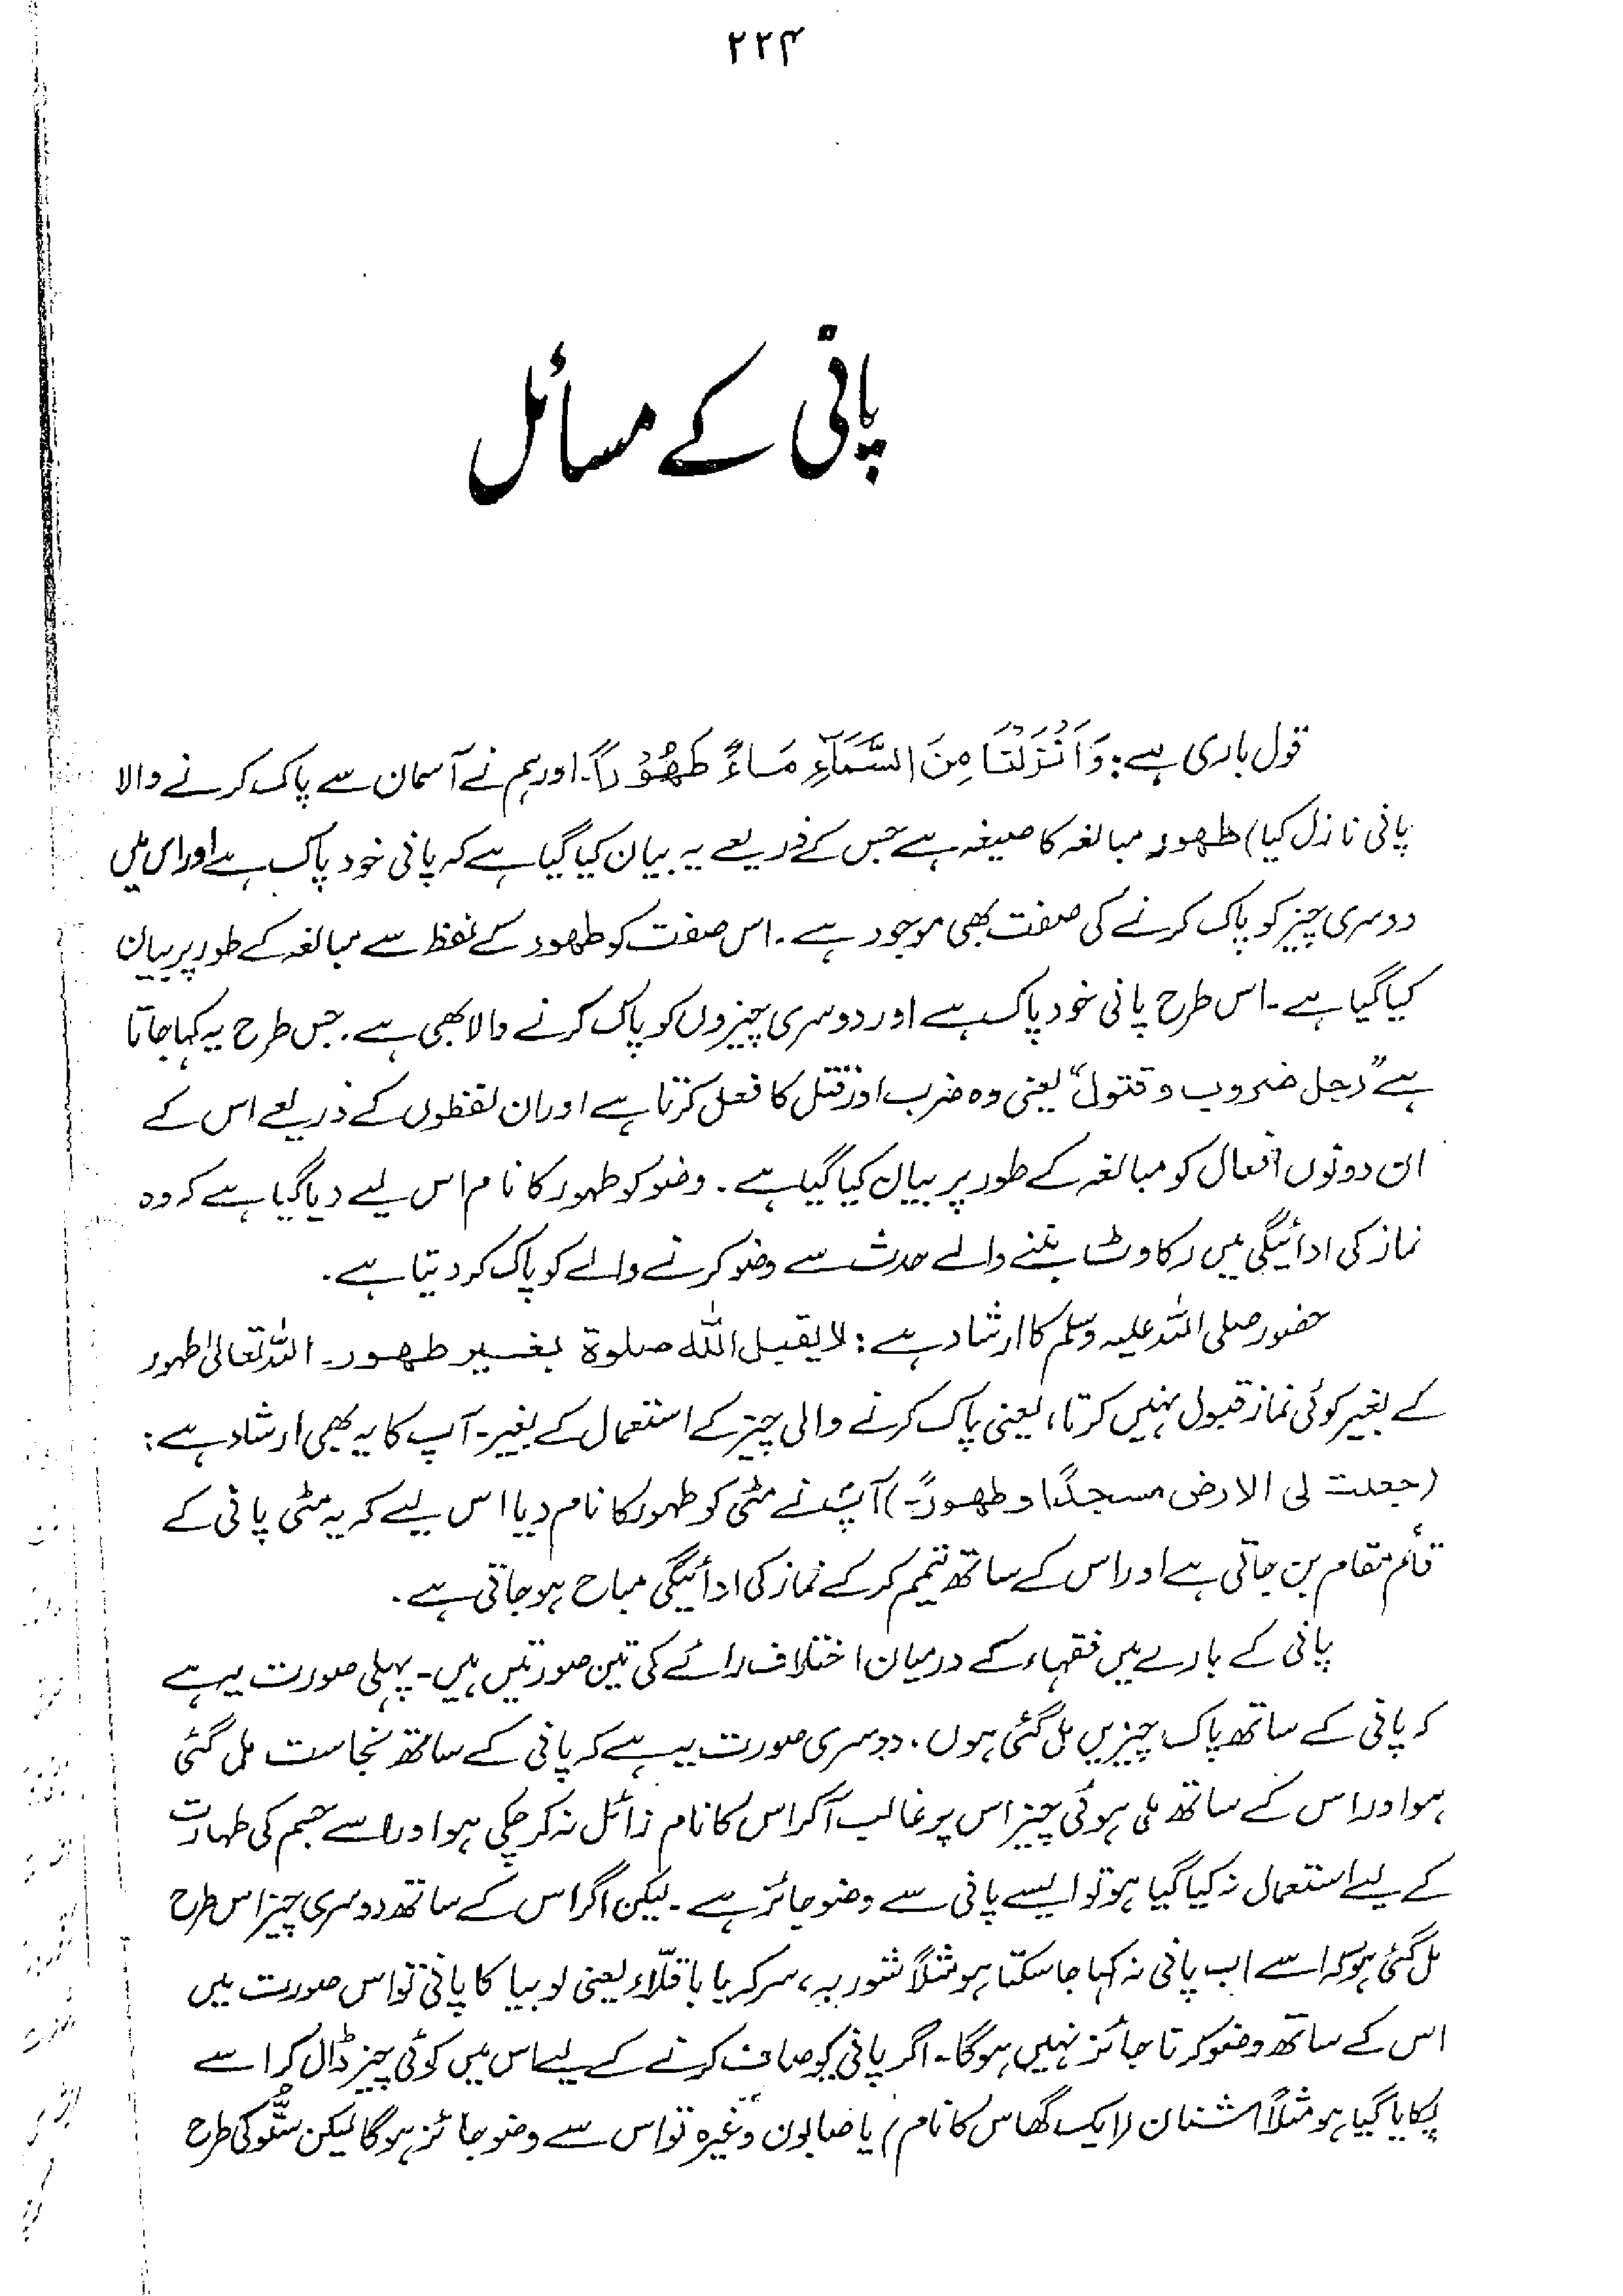 ۲۲۴
پانی کے مسائل
قول باری ہے: وَاَنْزَلْنَا مِنَ السَّمَآءِ مَاءً طَهُوْرًا۔ اور ہم نے آسمان سے پاک کرنے والا
پانی نازل کیا) طہور مبالغہ کا صیغہ ہے جس کے ذریعے یہ بیان کیا گیا ہے کہ پانی خود پاک ہے اور اس میں
دوسری چیز کو پاک کرنے کی صفت بھی موجود ہے۔ اس صفت کو طہور کے لفظ سے مبالغہ کے طور پر بیان
کیا گیا ہے۔ اس طرح پانی خود پاک ہے اور دوسری چیزوں کو پاک کرنے والا بھی ہے۔ جس طرح یہ کہا جاتا
ہے "رجل ضروب وقتول" یعنی وہ ضرب اور قتل کا فعل کرتا ہے اور ان لفظوں کے ذریعے اس کے
ان دونوں افعال کو مبالغہ کے طور پر بیان کیا گیا ہے۔ وضو کو طہور کا نام اس لیے دیا گیا ہے کہ وہ
نماز کی ادائیگی میں رکاوٹ بننے والے حدث سے وضو کرنے والے کو پاک کر دیتا ہے۔
حضور صلی اللہ علیہ وسلم کا ارشاد ہے: لا يقبل الله صلوة بغير طهور۔ اللہ تعالیٰ طہور
کے بغیر کوئی نماز قبول نہیں کرتا، یعنی پاک کرنے والی چیز کے استعمال کے بغیر۔ آپ کا یہ بھی ارشاد ہے:
(جعلت لى الارض مسجدًا وطهورًا۔) آپؐ نے مٹی کو طہور کا نام دیا اس لیے کہ یہ مٹی پانی کے
قائم مقام بن جاتی ہے اور اس کے ساتھ تیمم کر کے نماز کی ادائیگی مباح ہو جاتی ہے۔
پانی کے بارے میں فقہاء کے درمیان اختلاف رائے کی تین صورتیں ہیں۔ پہلی صورت یہ ہے
کہ پانی کے ساتھ پاک چیزیں مل گئی ہوں، دوسری صورت یہ ہے کہ پانی کے ساتھ نجاست مل گئی
ہو اور اس کے ساتھ ملی ہوئی چیز اس پر غالب آکر اس کا نام زائل نہ کر چکی ہو اور اسے جسم کی طہارت
کے لیے استعمال نہ کیا گیا ہو تو ایسے پانی سے وضو جائز ہے۔ لیکن اگر اس کے ساتھ دوسری چیز اس طرح
مل گئی ہو کہ اسے اب پانی نہ کہا جا سکتا ہو مثلاً شوربہ، سرکہ یا باقلّاء یعنی لوبیا کا پانی تو اس صورت میں
اس کے ساتھ وضو کرتا جائز نہیں ہوگا۔ اگر پانی کو صاف کرنے کے لیے اس میں کوئی چیز ڈال کر اسے
پکایا گیا ہو مثلاً اشنان (ایک گھاس کا نام) یا صابون وغیرہ تو اس سے وضو جائز ہوگا لیکن ستُّو کی طرح